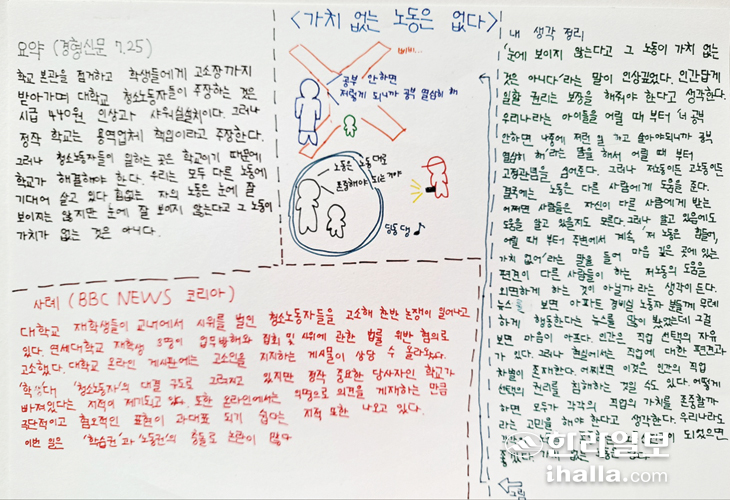 <가치 없는 노동은 없다>
요약 (경향신문 7.25)
학교 본관을 점거하고 학생들에게 고소장까지
받아가며 대학교 청소노동자들이 주장하는 것은
시급 440원 인상과 샤워실설치이다. 그러나
정작 학교는 용역업체 책임이라고 주장한다.
그러나 청소노동자들이 일하는 곳은 학교이기 때문에
학교가 해결해야 한다. 우리는 모두 다른 노동에
기대어 살고 있다. 힘없는 자의 노동은 눈에 잘
보이지는 않지만 눈에 잘 보이지 않는다고 그 노동이
가치가 없는 것은 아니다.
삐삐...
공부 안하면
저렇게 되니까 공부 열심히 해
노동은 노동대로
존중해야 되는거야
딩동댕♪
사례 (BBC NEWS 코리아)
대학교 재학생들이 교내에서 시위를 벌인 청소노동자들을 고소해 찬반 논쟁이 일어나고
있다. 연세대학교 재학생 3명이 업무방해와 집회 및 시위에 관한 법률 위반 혐의로
고소했다. 대학교 온라인 게시판에는 고소인을 지지하는 게시물이 상당 수 올라왔다.
'학생대 '청소노동자'의 대결 구도로 그려지고 있지만 정작 중요한 당사자인 학교가
빠져있다는 지적이 제기되고 있다. 또한 온라인에서는 익명으로 의견을 게재하는 만큼
극단적이고 혐오적인 표현이 과대표 되기 쉽다는 지적 또한 나오고 있다.
이번 일은 '학습권'과 '노동권'의 충돌로 논란이 많다
내 생각 정리
'눈에 보이지 않는다고 그 노동이 가치 없는
것은 아니다'라는 말이 인상깊었다. 인간답게
일할 권리는 보장을 해줘야 한다고 생각한다.
우리나라는 아이들을 어릴 때 부터 '너 공부
안하면 나중에 저런 일 하고 살아야되니까 공부
열심히 해'라는 말을 해서 어릴 때 부터
고정관념을 심어준다. 그러나 저노동이든 고노동이든
결국에는 노동은 다른 사람에게 도움을 준다.
어쩌면 사람들은 자신이 다른 사람에게 받는
도움을 알고 있을지도 모른다. 그러나 알고 있음에도
어릴 때 부터 주변에서 계속 '저 노동은 힘들어,
가치 없어'라는 말을 들어 마음 깊은 곳에 있는
편견이 다른 사람들이 하는 저노동의 도움을
외면하게 하는 것이 아닐까라는 생각이 든다.
뉴스를 보면 아파트 경비실 노동자 분들께 무례
하게 행동한다는 뉴스를 많이 봤었는데 그걸
보면 마음이 아프다. 인간은 직업 선택의 자유
가 있다. 그러나 현실에서는 직업에 대한 편견과
차별이 존재한다. 어찌보면 이것은 인간의 직업
선택의 권리를 침해하는 것일 수도 있다. 어떻게
하면 모두가 각각의 직업의 가치를 존중할까
라는 고민을 해야 한다고 생각한다. 우리나라도
되었으면
좋겠다. 가치 없는 노동은 없다.
그림
한라일보
ihalla.com